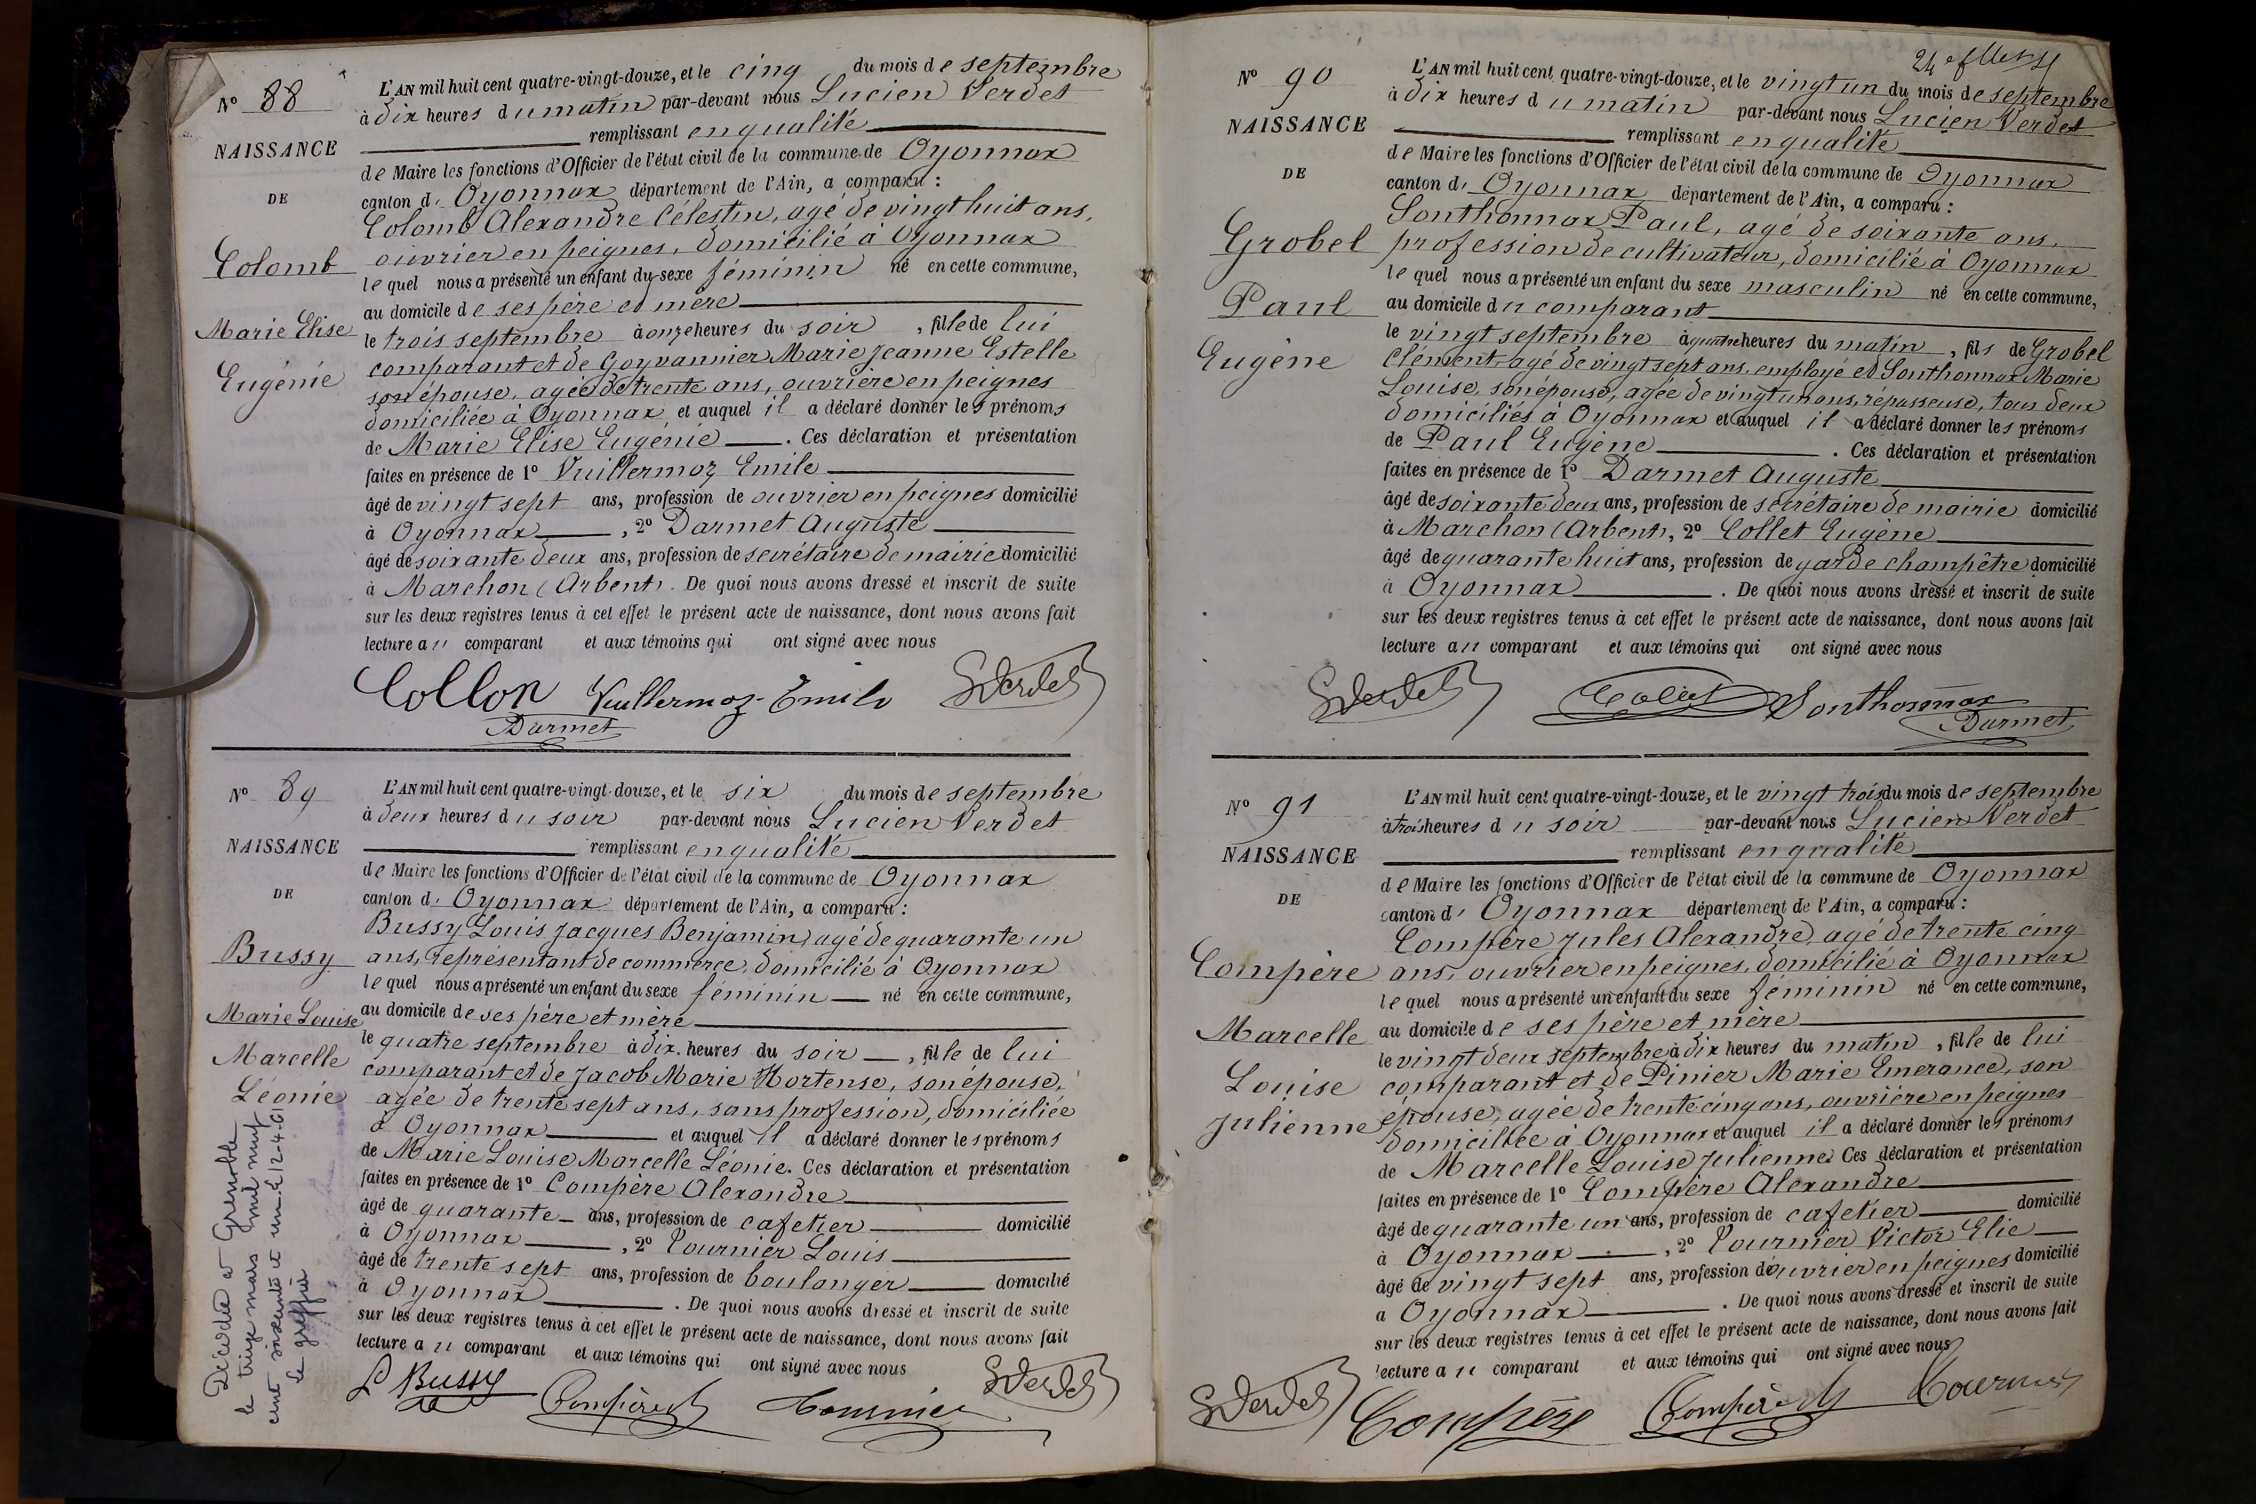 N° 88
NAISSANCE
DE
Colomb
Marie Elise
Eugénie
L'AN mil huit cent quatre-vingt-douze, et le cinq du mois de septembre
à dix heures du matin par-devant nous Lucien Verdet
remplissant en qualité
de Maire les fonctions d'Officier de l'état civil de la commune de Oyonnax
canton d' Oyonnax département de l'Ain, a comparu :
Colomb Alexandre Célestin, agé de vingt huit ans,
ouvrier en peignes, domicilié à Oyonnax
lequel nous a présenté un enfant du sexe féminin né en cette commune,
au domicile de ses père et mère
le trois septembre à onze heures du soir, fille de lui
comparant et de Goyvannier Marie Jeanne Estelle
son épouse, agée de trente ans, ouvrière en peignes
domiciliée à Oyonnax et auquel il a déclaré donner les prénoms
de Marie Elise Eugénie. Ces déclaration et présentation
faites en présence de 1° Vuillermoz Emile
âgé de vingt sept ans, profession de ouvrier en peignes domicilié
à Oyonnax, 2° Darmet Auguste
âgé de soixante deux ans, profession de secrétaire de mairie domicilié
à Marchon (Arbent). De quoi nous avons dressé et inscrit de suite
sur les deux registres tenus à cet effet le présent acte de naissance, dont nous avons fait
lecture au comparant et aux témoins qui ont signé avec nous
Collon Vuillermoz Emile Verdet
Darmet
N° 89
NAISSANCE
DE
Bussy
Marie Louise
Marcelle
Léonie
Décédée à Grenoble
le treize mars mil neuf
cent soixante et un. L 12-4-61
Le greffier
L'AN mil huit cent quatre-vingt-douze, et le six du mois de septembre
à deux heures du soir par-devant nous Lucien Verdet
remplissant en qualité
de Maire les fonctions d'Officier de l'état civil de la commune de Oyonnax
canton d' Oyonnax département de l'Ain, a comparu :
Bussy Louis Jacques Benjamin, agé de quarante un
ans, représentant de commerce, domicilié à Oyonnax
lequel nous a présenté un enfant du sexe féminin né en cette commune,
au domicile de ses père et mère
le quatre septembre à dix heures du soir, fille de lui
comparant et de Jacob Marie Hortense, son épouse,
agée de trente sept ans, sans profession, domiciliée
à Oyonnax et auquel il a déclaré donner les prénoms
de Marie Louise Marcelle Léonie. Ces déclaration et présentation
faites en présence de 1° Compère Alexandre
âgé de quarante ans, profession de cafetier domicilié
à Oyonnax, 2° Tournier Louis
âgé de trente sept ans, profession de boulanger domicilié
à Oyonnax. De quoi nous avons dressé et inscrit de suite
sur les deux registres tenus à cet effet le présent acte de naissance, dont nous avons fait
lecture au comparant et aux témoins qui ont signé avec nous
L Bussy Compère Tournier Verdet
N° 90
NAISSANCE
DE
Grobel
Paul
Eugène
L'AN mil huit cent quatre-vingt-douze, et le vingt un du mois de septembre
à dix heures du matin par-devant nous Lucien Verdet
remplissant en qualité
de Maire les fonctions d'Officier de l'état civil de la commune de Oyonnax
canton d' Oyonnax département de l'Ain, a comparu :
Sonthonnax Paul, agé de soixante ans,
profession de cultivateur, domicilié à Oyonnax
lequel nous a présenté un enfant du sexe masculin né en cette commune,
au domicile du comparant
le vingt septembre à quatre heures du matin, fils de Grobel
Clément, agé de vingt sept ans, employé et Sonthonnax Marie
Louise, son épouse, agée de vingt un ans, repasseuse, tous deux
domiciliés à Oyonnax et auquel il a déclaré donner les prénoms
de Paul Eugène. Ces déclaration et présentation
faites en présence de 1° Darmet Auguste
âgé de soixante deux ans, profession de secrétaire de mairie domicilié
à Marchon (Arbent), 2° Collet Eugène
âgé de quarante huit ans, profession de garde champêtre domicilié
à Oyonnax. De quoi nous avons dressé et inscrit de suite
sur les deux registres tenus à cet effet le présent acte de naissance, dont nous avons fait
lecture au comparant et aux témoins qui ont signé avec nous
Verdet Collet Sonthonnax
Darmet
N° 91
NAISSANCE
DE
Compère
Marcelle
Louise
Julienne
L'AN mil huit cent quatre-vingt-douze, et le vingt trois du mois de septembre
à trois heures du soir par-devant nous Lucien Verdet
remplissant en qualité
de Maire les fonctions d'Officier de l'état civil de la commune de Oyonnax
canton d' Oyonnax département de l'Ain, a comparu :
Compère Jules Alexandre, agé de trente cinq
ans, ouvrier en peignes, domicilié à Oyonnax
lequel nous a présenté un enfant du sexe féminin né en cette commune,
au domicile de ses père et mère
le vingt deux septembre à dix heures du matin, fille de lui
comparant et de Pinier Marie Emerance, son
épouse, agée de trente cinq ans, ouvrière en peignes
domiciliée à Oyonnax et auquel il a déclaré donner les prénoms
de Marcelle Louise Julienne. Ces déclaration et présentation
faites en présence de 1° Compère Alexandre
âgé de quarante un ans, profession de cafetier domicilié
à Oyonnax, 2° Tournier Victor Elie
âgé de vingt sept ans, profession de ouvrier en peignes domicilié
à Oyonnax. De quoi nous avons dressé et inscrit de suite
sur les deux registres tenus à cet effet le présent acte de naissance, dont nous avons fait
lecture au comparant et aux témoins qui ont signé avec nous
Verdet Compère Compère Tournier